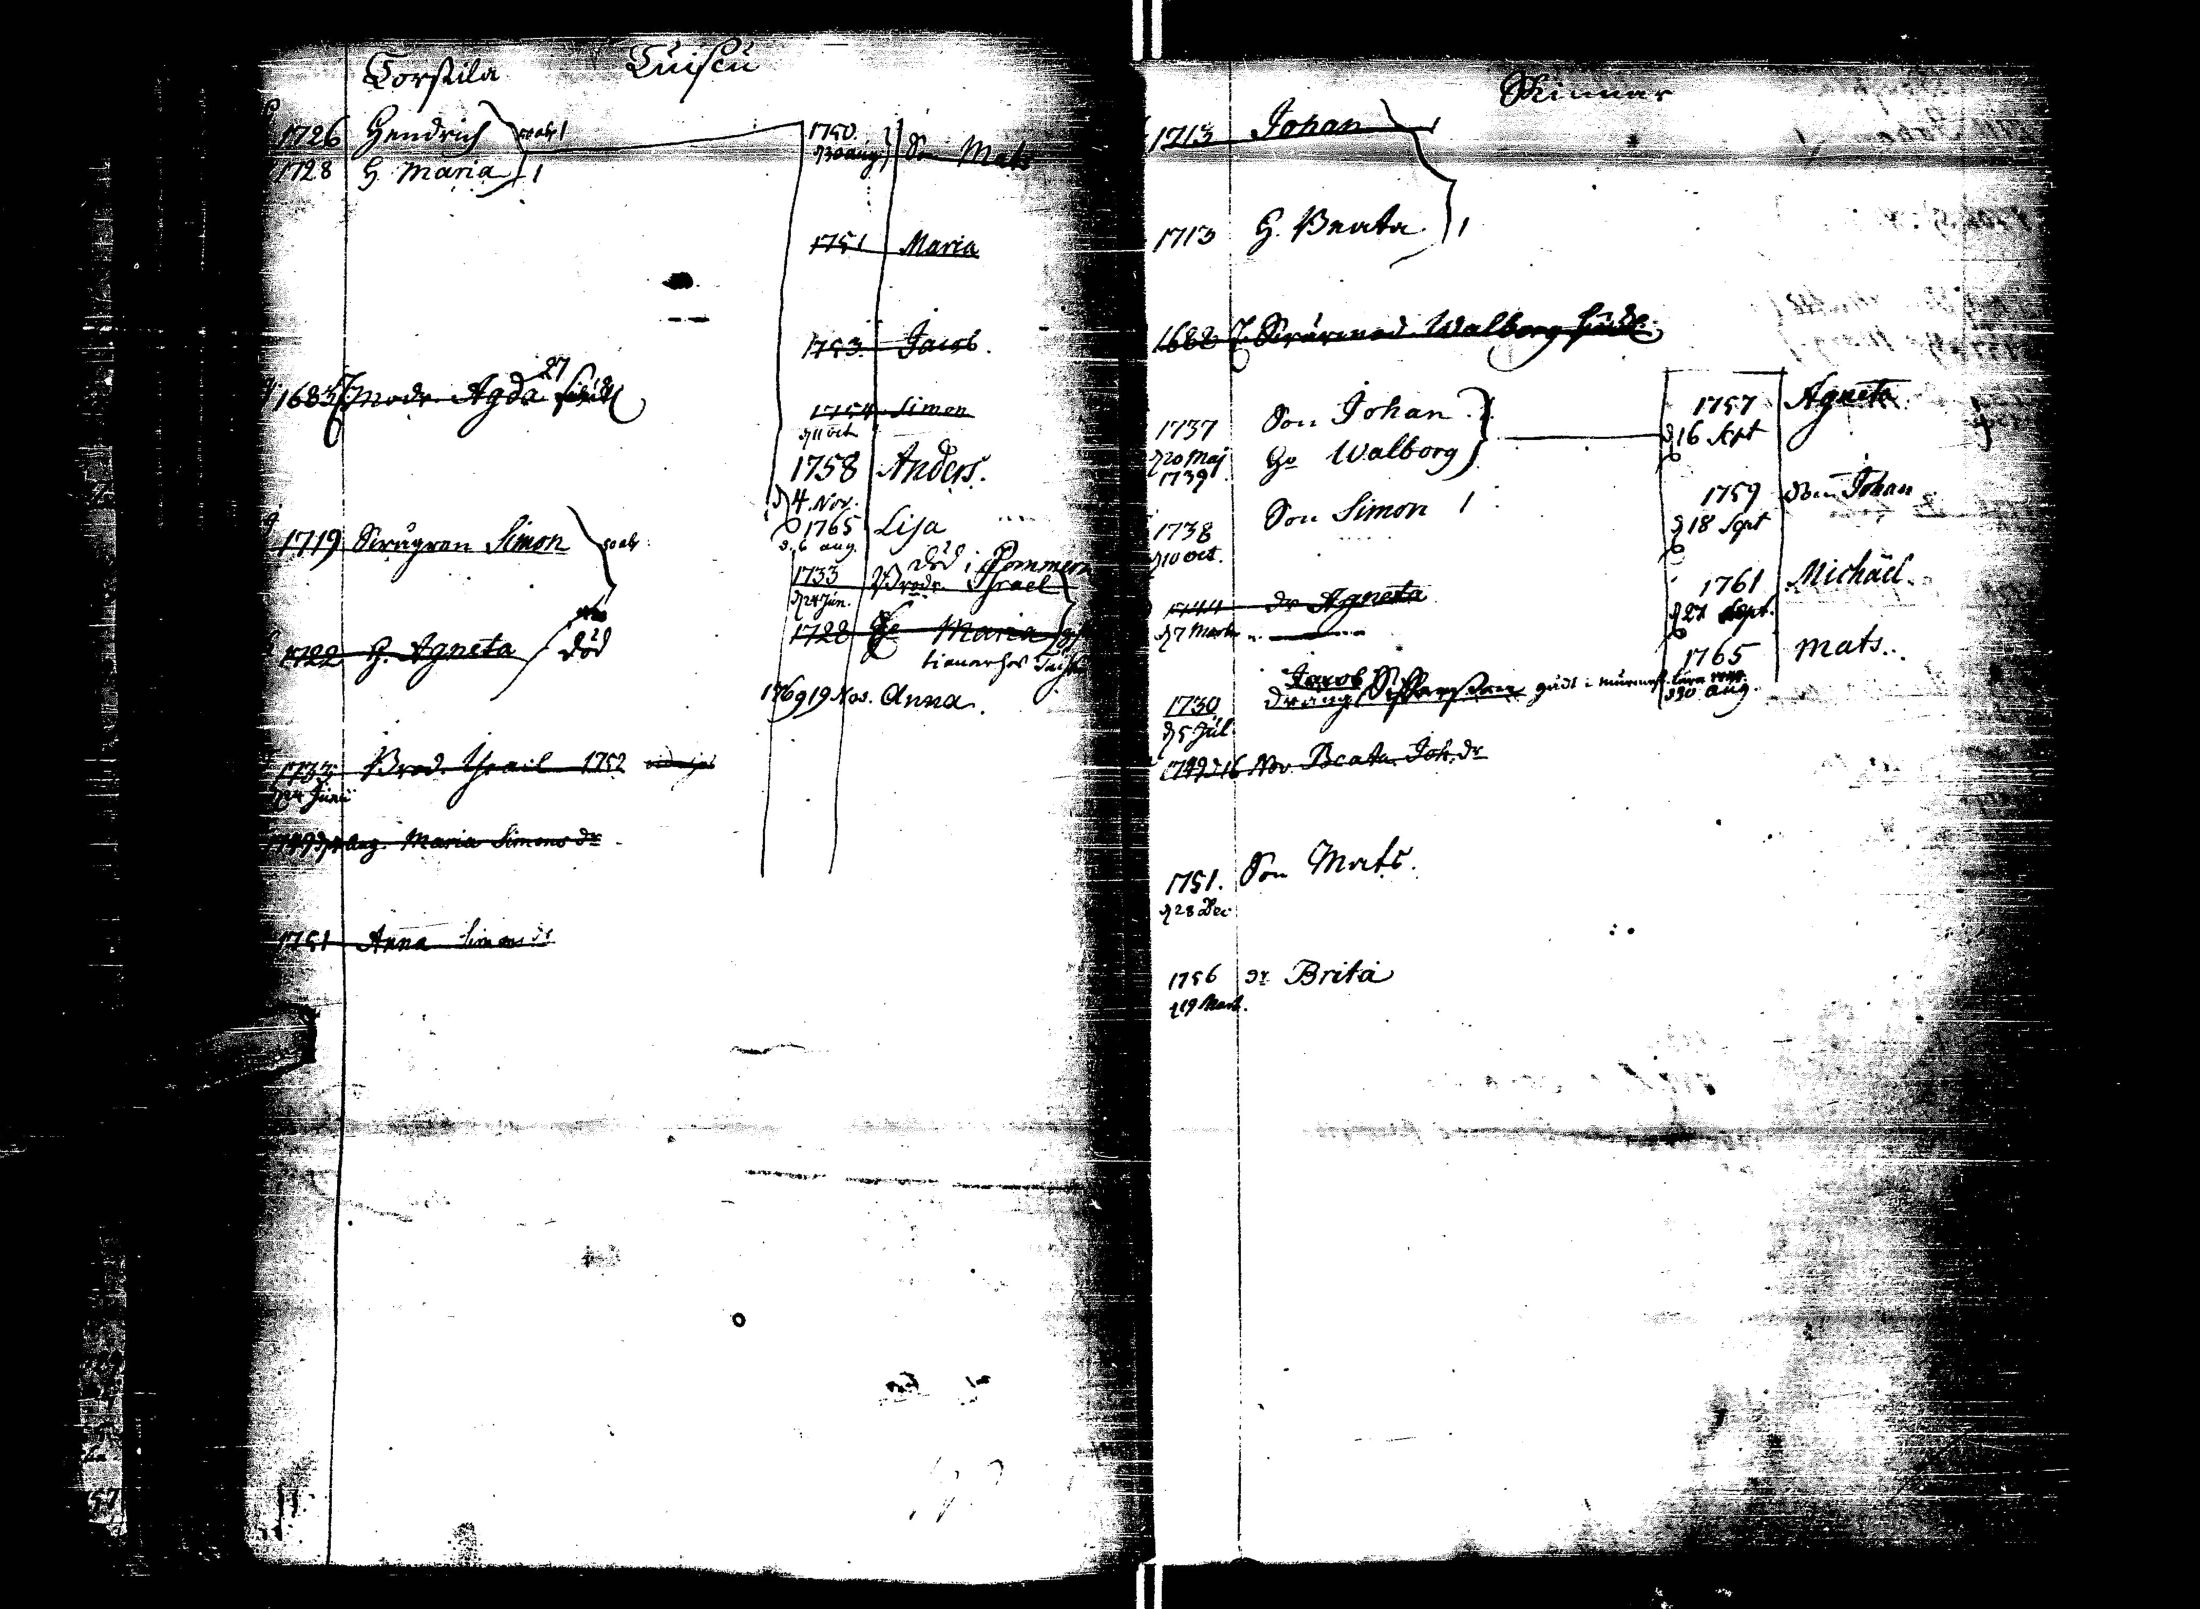 Torstila Tuiscu
1726 Hendrich 1
1728 H. Maria 1
1750. d 30 aug. Son Mats
1751 Maria
1753 Jacob.
1683 Modr. Agda 27
1754 Simon
d 11 Oct.
1758 Anders.
d 4 Nov.
1765 Lisa
d. 6 aug.
1719 Simon
död i Pommern
1733 Brodr. Israel
d 24 Jun.
1728 H. Maria
1722 H. Agneta död
1769 19 Nov. Anna.
1733 Brod. Israil 1752
d 24 Junii
aug. Maria Simons dr
1751 Anna Simons dr
Skinnar
1713 Johan 1
1713 H. Beata 1
1688 Walborg
1737 Son Johan 1
d 20 Maj
1739 Walborg
1757 Agneta
d 16 Sept
1738 Son Simon 1
d 10 Oct.
1759 Son Johan
d 18 Sept
1744 dr Agneta
d 7 Mart
1761 Michäel.
d 27 Sept.
1765 Mats.
d 30 aug.
Jacob
1730 dräng
d 5 Jul.
1749 d 16 Nov. Beata Joh. dr
1751. Son Mats.
d 28 Dec
1756 dr Brita
d 19 Mart.